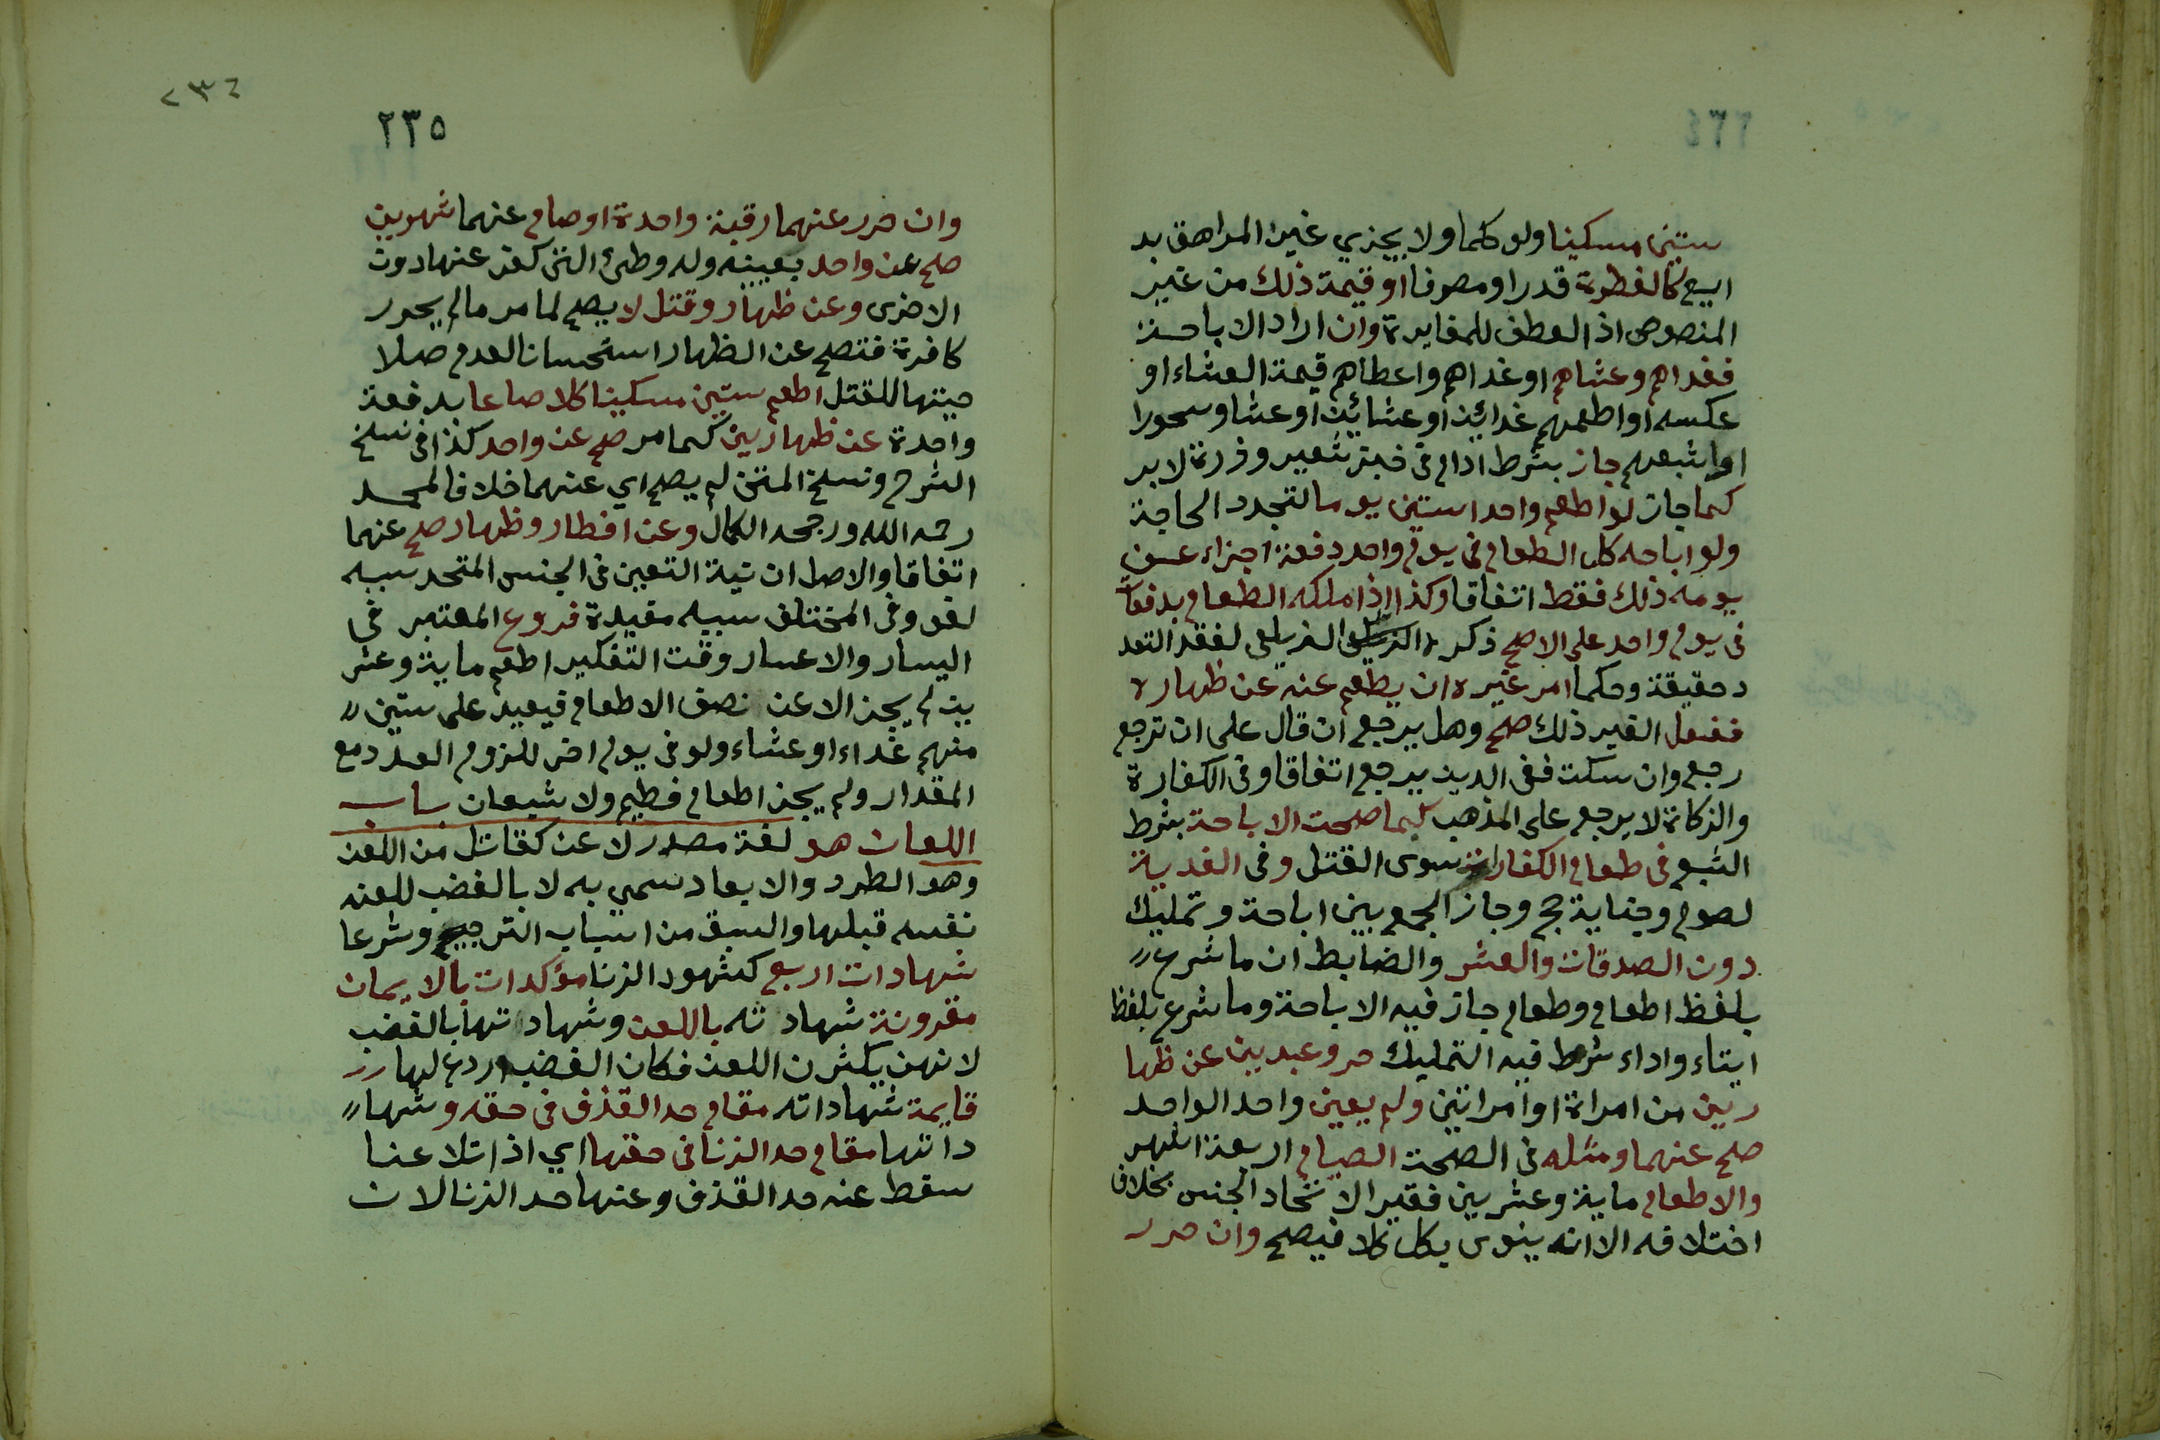 ستين مسكينا ولو حكما ولا يجزي غير المراهق بد
ايع كالفطرة قدرا ومصرفا او قيمة ذلك من غير
المنصوص اذ العطف للمغايرة وان اراد الاباحة
فغداهم وعشاهم او غداهم واعطاهم قيمة العشاء او
عكسه او اطعمهم غدائين او عشائين او عشا وسحورا
اواشبعهم جاز بشرط ادام في خبز شعير وذرة لا بر
كما جاز لو اطعم واحدا ستين يوما لتجدد الحاجة
ولو اباحه كل الطعام في يوم واحد دفعة اجزاء عن
يومه ذلك فقط اتفاقا وكذا اذا ملكه الطعام بدفعات
في يوم واحد على الاصح ذكره الزيلعي لفقد التعد
د حقيقة وحكما امر غيره ان يطعم عنه عن ظهاره
ففعل الغير ذلك صح وهل يرجع ان قال على ان ترجع
رجع وان سكت ففي الدين يرجع اتفاقا وفي الكفارة
والزكاة لا يرجع على المذهب كما صحت الاباحة بشرط
الشبع في طعام الكفارات سوى القتل وفي الفدية
لصوم وجناية حج وجاز الجمع بين اباحة وتمليك
دون الصدقات والعشر والضابط ان ما شرع
بلفظ اطعام وطعام جاز فيه الاباحة وما شرع بلفظ
ايتاء واداء شرط فيه التمليك حر وعبدين عن ظها
رين من امراة او امراتين ولم يعين واحد الواحد
صح عنهما ومثله في الصحة الصيام اربعة اشهر
والاطعام ماية وعشرين فقيرا لاتحاد الجنس بخلاف
اختلافه الا انه ينوى بكل كلا فيصح وان حرر
٢٣٤
٢٣٥
وان حرر عنهما رقبة واحدة او صام عنهما شهرين
صح عن واحد بعينه وله وطئ التى كفر عنها دون
الاخرى وعن ظهار وقتل لا يصح لما مر مالم يحرر
كافرة فتصح عن الظهار استحسانا لعدم صلا
حيتها للقتل اطعم ستين مسكينا كلا صاعا بدفعة
واحدة عن ظهارين كما مر صح عن واحد كذا في نسخ
الشرح ونسخ المتن لم يصح اي عنهما خلافا لمحمد
رحمه الله ورجحه الكمال وعن افطار وظهار صح عنهما
اتفاقا والاصل ان نية التعين في الجنس المتحد سببه
لغو وفي المختلف سببه مفيدة فروع المعتبر في
اليسار والاعسار وقت التكفير اطعم ماية وعشر
ين لم يجز الا عن نصف الاطعام فيعيد على ستين
منهم غداء او عشاء ولو في يوم اخر للزوم العدد مع
المقدار ولم يجز اطعام فطيم ولا شبعان باب
اللعان هو لغة مصدر لاعن كقاتل من اللعن
وهو الطرد والابعاد سمي به لا بالغضب للعنه
نفسه قبلها والسبق من اسباب الترجيح وشرعا
شهادات اربع كشهود الزنا مؤكدات بالايمان
مقرونة شهادته باللعن وشهادتها بالغضب
لانهن يكثرن اللعن فكان الغضب اردع لها
قايمة شهاداته مقام حد القذف في حقه وشها
داتها مقام حد الزنا في حقها اي اذا تلاعنا
سقط عنه حد القذف وعنها حد الزنا لان